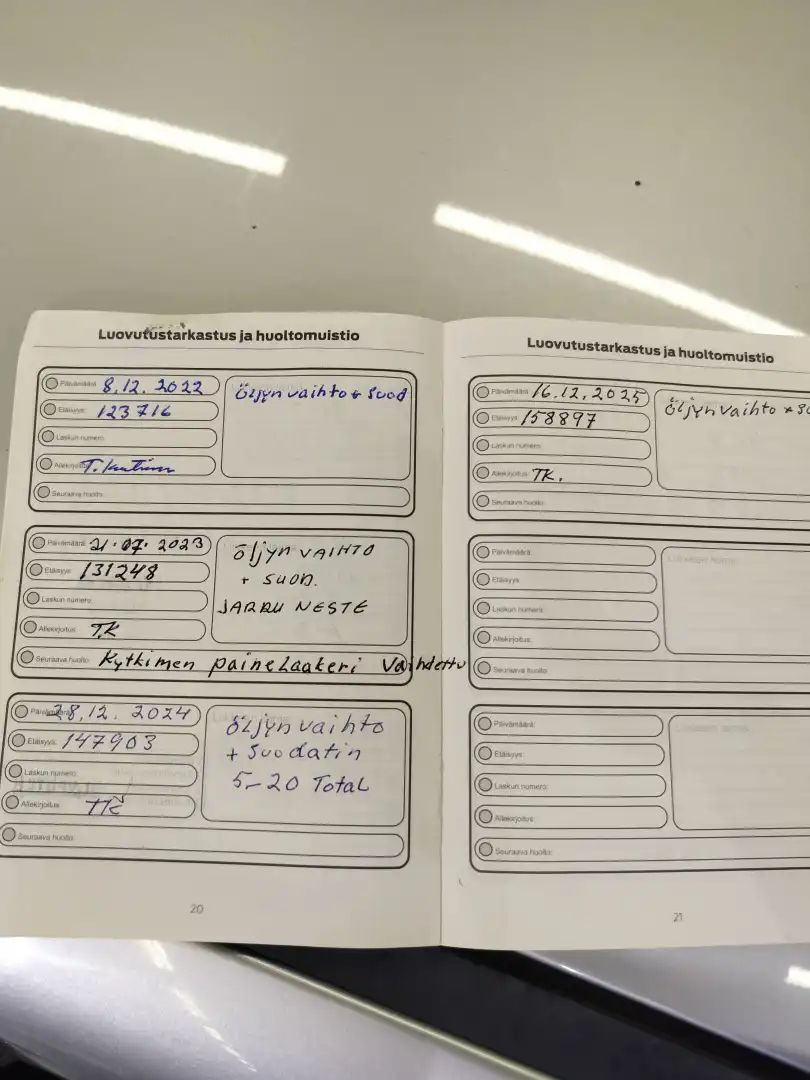 Luovutustarkastus ja huoltomuistio
Päivämäärä: 8.12.2022
öljyn vaihto + suod
Etäisyys: 123716
Laskun numero:
Allekirjoitus:
Seuraava huolto:
Päivämäärä: 21.07.2023
öljyn VAIHTO
+ suoD.
JARRU NESTE
Etäisyys: 131248
Laskun numero:
Allekirjoitus: T.K
Seuraava huolto: Kytkimen painelaakeri Vaihdettu
Päivämäärä: 28.12.2024
öljyn vaihto
+ suodatin
5-20 Total
Etäisyys: 147903
Laskun numero:
Allekirjoitus: TK
Seuraava huolto:
20
Luovutustarkastus ja huoltomuistio
Päivämäärä: 16.12.2025
öljyn vaihto + su
Etäisyys: 158897
Laskun numero:
Allekirjoitus: TK.
Seuraava huolto:
Päivämäärä:
Etäisyys:
Laskun numero:
Allekirjoitus:
Seuraava huolto:
Päivämäärä:
Etäisyys:
Laskun numero:
Allekirjoitus:
Seuraava huolto:
21